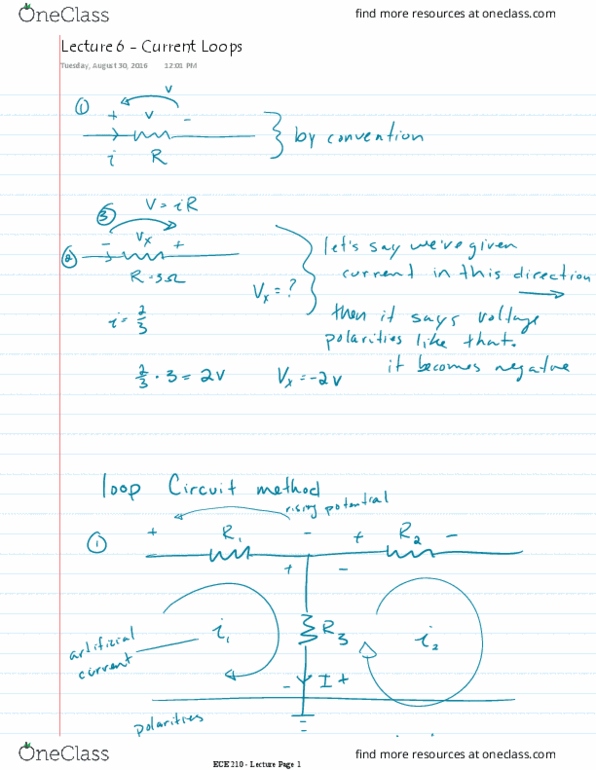 OneClass
find more resources at oneclass.com
Lecture 6 - Current Loops
Tuesday, August 30, 2016 12:01 PM
v
① + v -
i R
by convention
③ V = iR
Vx
② - +
R = 3Ω
i = 2/3
Vx = ?
let's say we've given
current in this direction
then it says voltage
polarities like that.
it becomes negative
2/3 · 3 = 2V Vx = -2V
loop Circuit method
rising potential
① + R1 - + R2 -
+ -
i1 R3 i2
artificial
current
- I +
polarities
OneClass
find more resources at oneclass.com
ECE 210 - Lecture Page 1